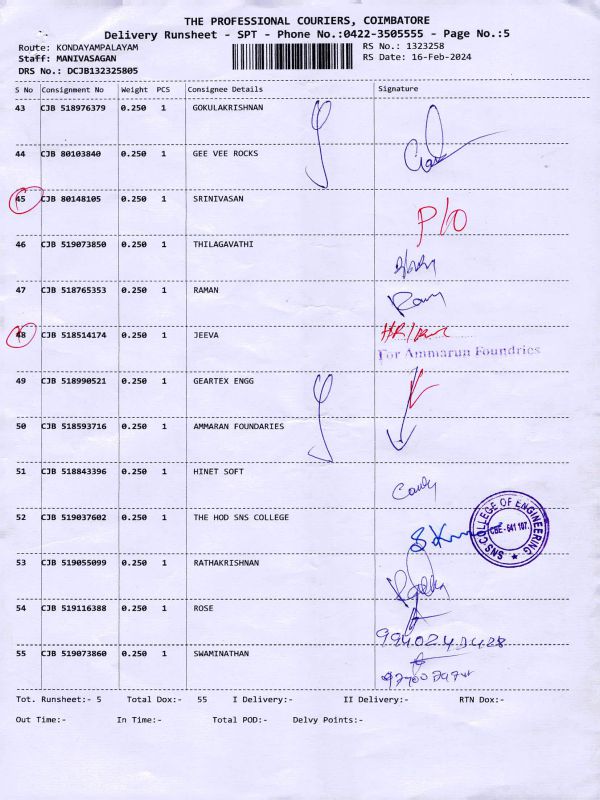 THE PROFESSIONAL COURIERS, COIMBATORE
Delivery Runsheet - SPT - Phone No.:0422-3505555 - Page No.:5
Route: KONDAYAMPALAYAM RS No.: 1323258
Staff: MANIVASAGAN RS Date: 16-Feb-2024
DRS No.: DCJB132325805
S No Consignment No Weight PCS Consignee Details Signature
43 CJB 518976379 0.250 1 GOKULAKRISHNAN
44 CJB 80103840 0.250 1 GEE VEE ROCKS
45 CJB 80148105 0.250 1 SRINIVASAN P/O
46 CJB 519073850 0.250 1 THILAGAVATHI
47 CJB 518765353 0.250 1 RAMAN
48 CJB 518514174 0.250 1 JEEVA
For Ammarun Foundries
49 CJB 518990521 0.250 1 GEARTEX ENGG
50 CJB 518593716 0.250 1 AMMARAN FOUNDARIES
51 CJB 518843396 0.250 1 HINET SOFT
52 CJB 519037602 0.250 1 THE HOD SNS COLLEGE
SNS COLLEGE OF ENGINEERING
CBE - 641 107.
53 CJB 519055099 0.250 1 RATHAKRISHNAN
54 CJB 519116388 0.250 1 ROSE
55 CJB 519073860 0.250 1 SWAMINATHAN
Tot. Runsheet:- 5 Total Dox:- 55 I Delivery:- II Delivery:- RTN Dox:-
Out Time:- In Time:- Total POD:- Delvy Points:-